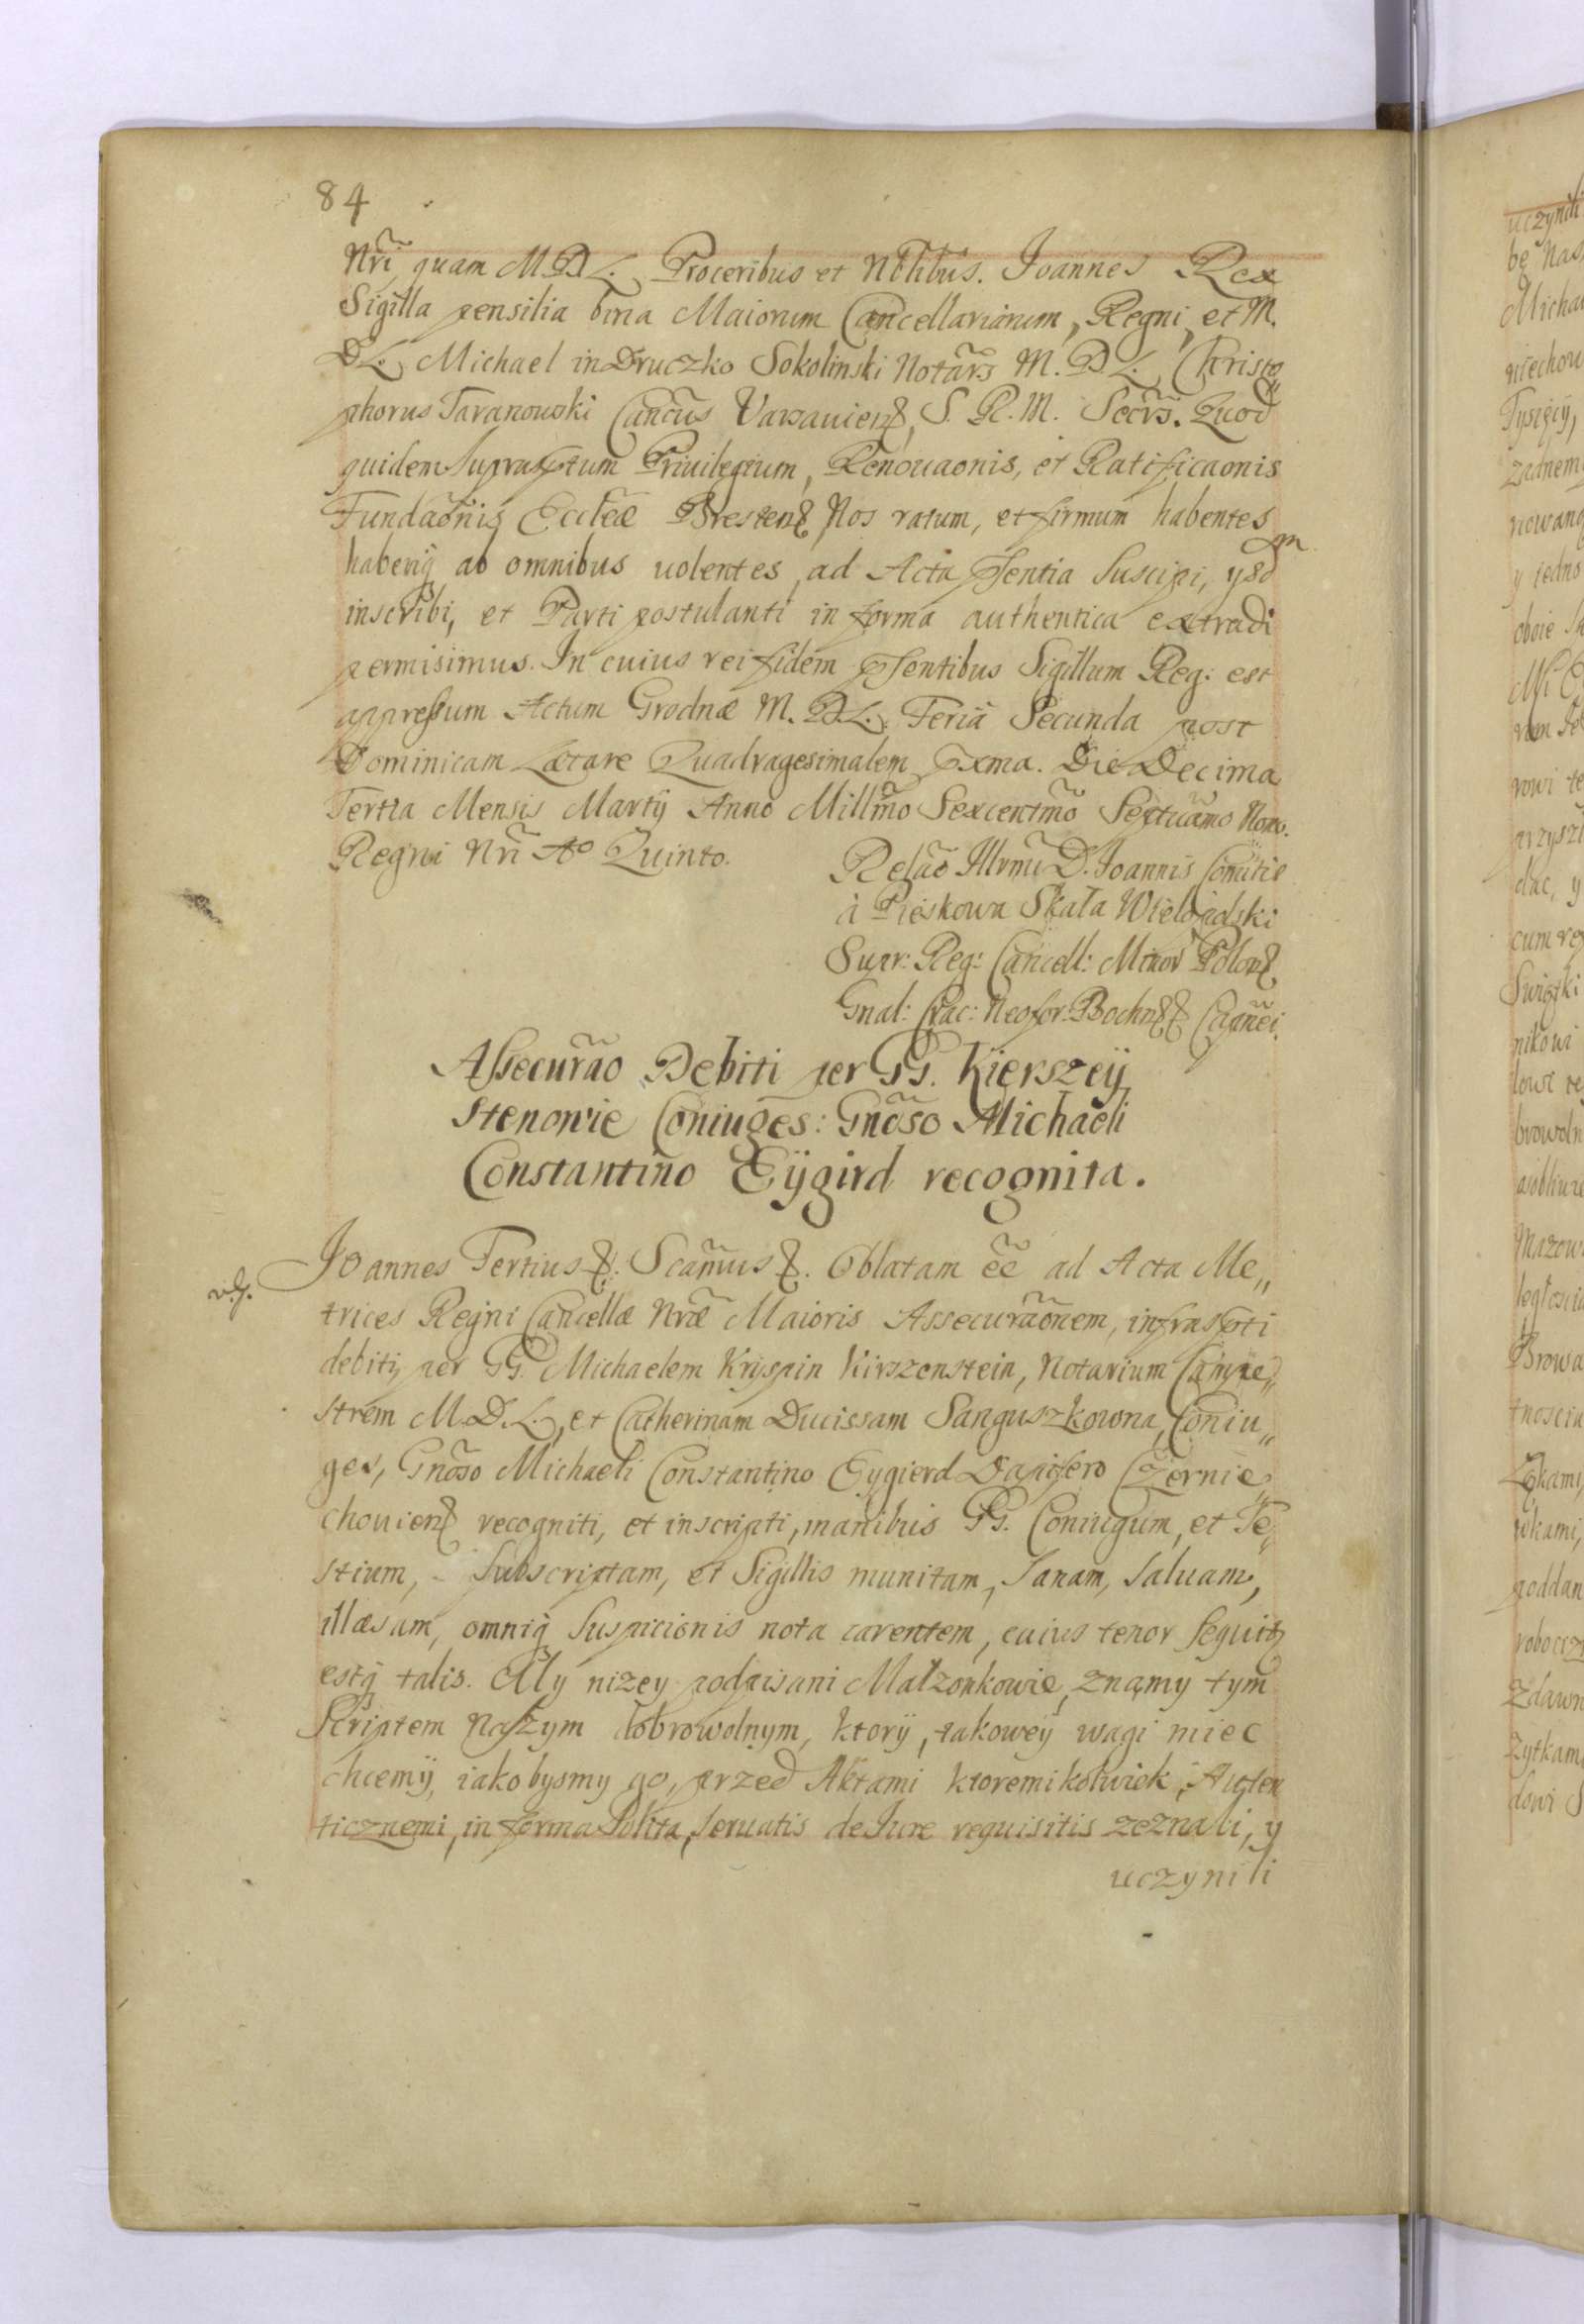 84
Nr̃i quam M. D. L. Proceribus et Nobilibus. Joannes Rex
Sigilla pensilia bina Maiorum Cancellariarum, Regni, et M.
D. L. Michael in Druczko Sokolinski Notãrs M. D. L. Christo„
phorus Taranowski Cancũs Varsauien̄, S. R. M. Secr̃s. Quod
quidem suprasptum Priuilegium, Renouaonis, et Ratificaonis
Fundaõnis Eccleæ Bresten̄ Nos ratum, et firmum habentes
haberiq̨ ab omnibus uolentes, ad Acta p̄sentia suscipi,
inscribi, et Parti postulanti in forma authentica extradi
permisimus. In cuius rei fidem p̄sentibus Sigillum Reg: est
appressum Actum Grodnæ M. D. L. Feria Secunda post
Dominicam Lætare Quadragesimalem pxma. Die Decima
Tertia Mensis Martij Anno Millm̃o Sexcentm̃o Septuãmo Nono.
Regni Nr̃i Ao Quinto.
Relaõ Illrmi D. Joannis Comitis
à Pieskowa Skała Wielopolski
Supr: Reg: Cancell: Minor Polon̄
Gnal: Crac: Neofor: Bochn̄ Capnei.
Assecurãо Debiti per GG. Kierszeÿ
stenowie Coniuges: Gnõso Michaeli
Constantino Eÿgird recognita.
Joannes Tertius etc. Scamus etc. Oblatam ee̴ ad Acta Me„
trices Regni Cancellæ Nræ Maioris Assecuraõnem, infraspti
debiti, per GG. Michaelem Kryspin Kirszenstein, Notarium Campe„
strem M. D. L., et Catherinam Ducissam Sanguszkowna, Coniu„
ges, Gnõso Michaeli Constantino Eygierd Dapifero Czernie„
chouien̄ recogniti, et inscripti, manibus GG. Coniugum, et Te„
stium, subscriptam, et Sigillis munitam, sanam, saluam,
illæsam, omniq̨ suspicionis nota carentem, cuius tenor sequitr
estq̨ talis. My nizey podpisani Małzonkowie, znamy tym
scriptem naszym dobrowolnym, ktorÿ, takoweÿ wagi miec
chcemÿ, iakobysmy go, przed Aktami ktoremikolwiek, Auten
ticznemi, in forma Solita, seruatis de Iure requisitis zeznali, y
uczynili